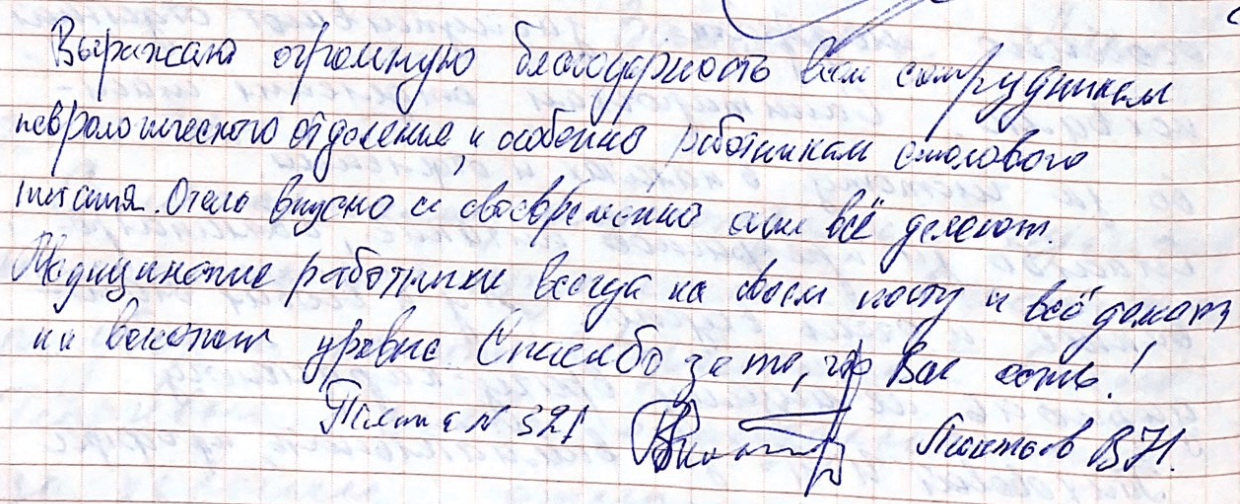 Выражаю огромную благодарность всем сотрудникам
неврологического отделения, и особенно работникам столового
питания. Очень вкусно и своевременно они всё делают.
Медицинские работники всегда на своем посту и всё делают
на высоком уровне. Спасибо за то, что Вы есть!
№ 321 В.Н.